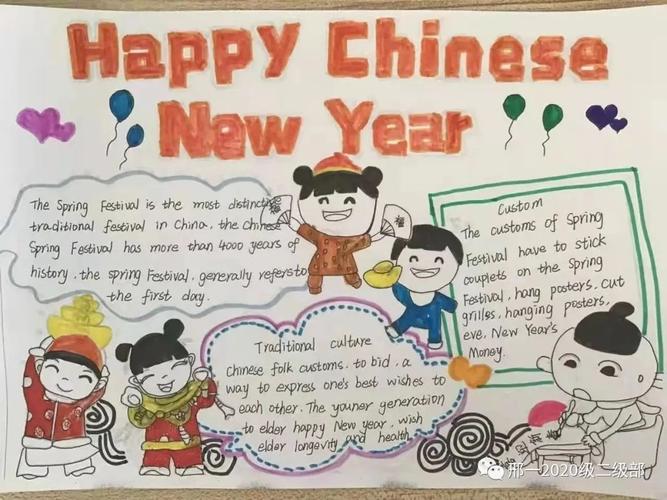 Happy Chinese
New Year
The Spring Festival is the most distinctive
traditional festival in China. the Chinese
Spring Festival has more than 4000 years of
history. the spring Festival. generally refers to
the first day.
Custom
The customs of Spring
Festival have to stick
couplets on the Spring
Festival, hang posters. cut
grilles, hanging posters,
eve, New Year's
Money.
Traditional culture
chinese folk customs. to bid. a
way to express one's best wishes to
each other. The youner generation
to elder happy New year. wish
elder longevity and health
邢一2020级二级部